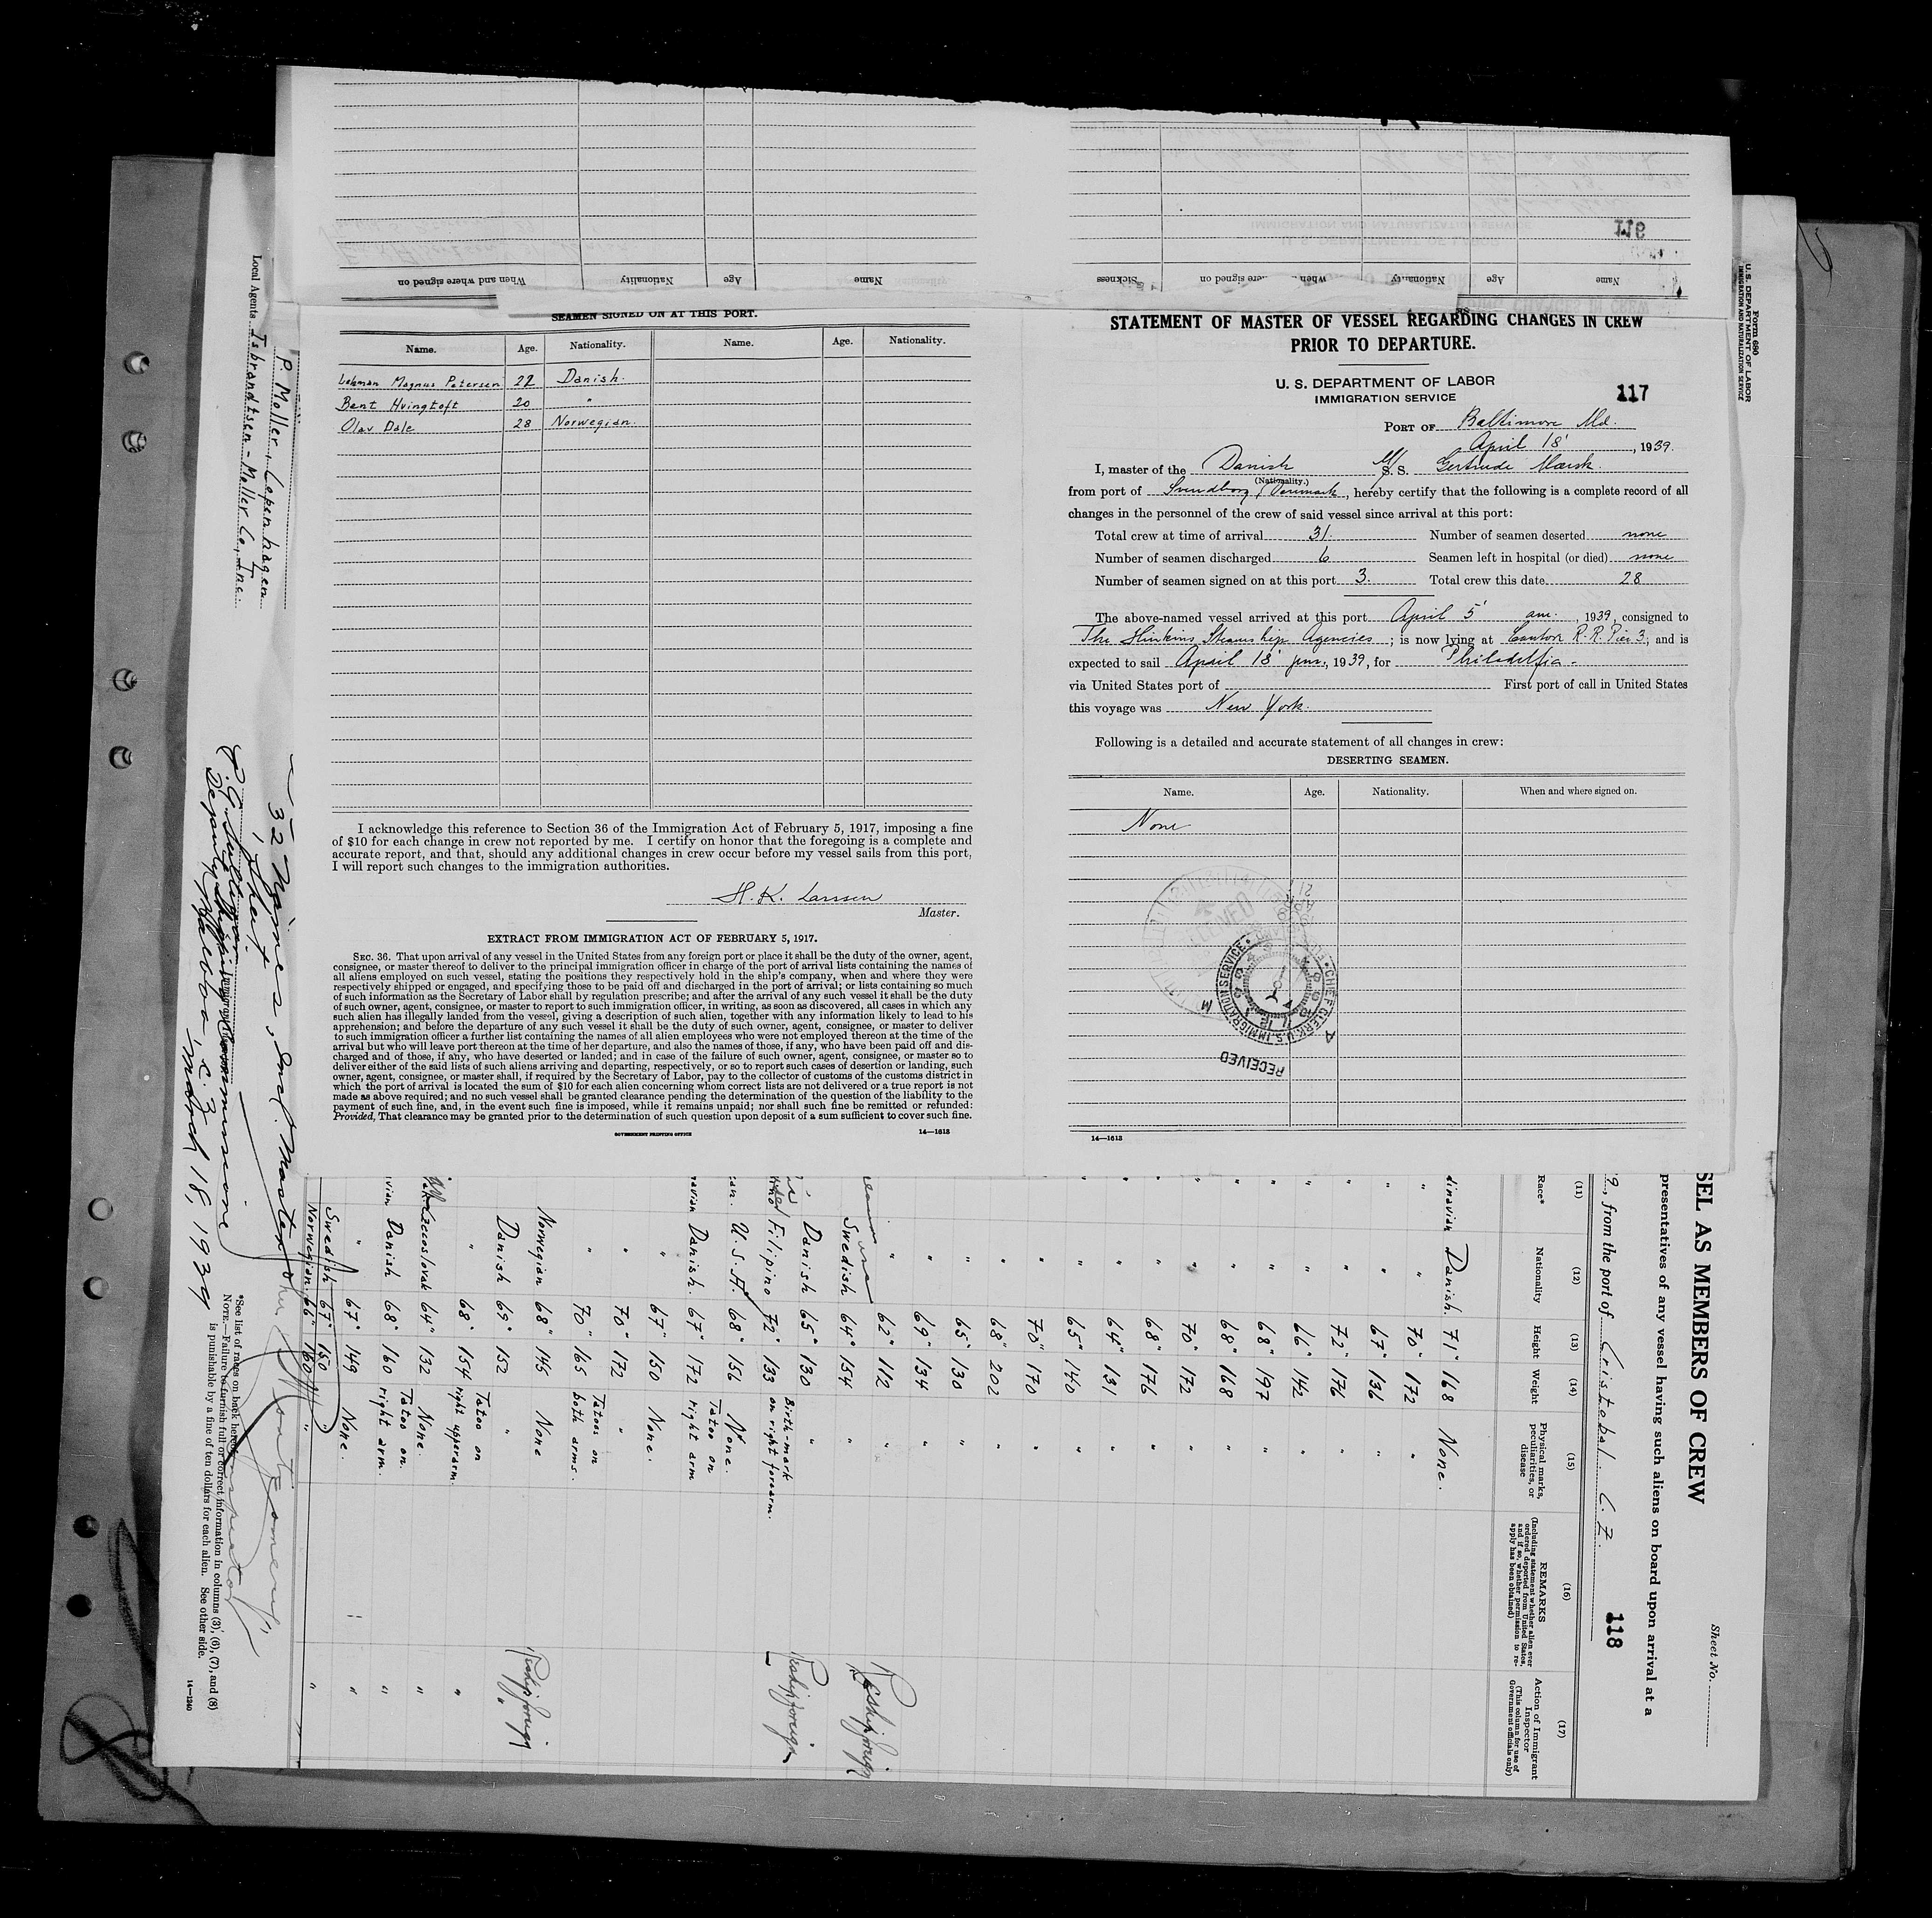 SEAMEN SIGNED ON AT THIS PORT.
Name. Age. Nationality. Name. Age. Nationality.
Magnus Petersen 22 Danish.
Bent Hvingtoft 20 "
Olav Dale 28 Norwegian.
I acknowledge this reference to Section 36 of the Immigration Act of February 5, 1917, imposing a fine
of $10 for each change in crew not reported by me. I certify on honor that the foregoing is a complete and
accurate report, and that, should any additional changes in crew occur before my vessel sails from this port,
I will report such changes to the immigration authorities.
H. K. Larssen
Master.
EXTRACT FROM IMMIGRATION ACT OF FEBRUARY 5, 1917.
SEC. 36. That upon arrival of any vessel in the United States from any foreign port or place it shall be the duty of the owner, agent,
consignee, or master thereof to deliver to the principal immigration officer in charge of the port of arrival lists containing the names of
all aliens employed on such vessel, stating the positions they respectively hold in the ship's company, when and where they were
respectively shipped or engaged, and specifying those to be paid off and discharged in the port of arrival; or lists containing so much
of such information as the Secretary of Labor shall by regulation prescribe; and after the arrival of any such vessel it shall be the duty
of such owner, agent, consignee, or master to report to such immigration officer, in writing, as soon as discovered, all cases in which any
such alien has illegally landed from the vessel, giving a description of such alien, together with any information likely to lead to his
apprehension; and before the departure of any such vessel it shall be the duty of such owner, agent, consignee, or master to deliver
to such immigration officer a further list containing the names of all alien employees who were not employed thereon at the time of the
arrival but who will leave port thereon at the time of her departure, and also the names of those, if any, who have been paid off and dis-
charged and of those, if any, who have deserted or landed; and in case of the failure of such owner, agent, consignee, or master so to
deliver either of the said lists of such aliens arriving and departing, respectively, or so to report such cases of desertion or landing, such
owner, agent, consignee, or master shall, if required by the Secretary of Labor, pay to the collector of customs of the customs district in
which the port of arrival is located the sum of $10 for each alien concerning whom correct lists are not delivered or a true report is not
made as above required; and no such vessel shall be granted clearance pending the determination of the question of the liability to the
payment of such fine, and, in the event such fine is imposed, while it remains unpaid; nor shall such fine be remitted or refunded:
Provided, That clearance may be granted prior to the determination of such question upon deposit of a sum sufficient to cover such fine.
GOVERNMENT PRINTING OFFICE 14—1613
STATEMENT OF MASTER OF VESSEL REGARDING CHANGES IN CREW
PRIOR TO DEPARTURE.
U. S. DEPARTMENT OF LABOR
IMMIGRATION SERVICE
117
PORT OF Baltimore Md.
April 18', 1939.
I, master of the Danish M/S. S. Gertrude Maersk.
(Nationality.)
from port of Svendborg, Denmark, hereby certify that the following is a complete record of all
changes in the personnel of the crew of said vessel since arrival at this port:
Total crew at time of arrival 31. Number of seamen deserted none
Number of seamen discharged 6 Seamen left in hospital (or died) none
Number of seamen signed on at this port 3. Total crew this date 28
The above-named vessel arrived at this port April 5' am., 1939, consigned to
The Hinkins Steamship Agencies; is now lying at Canton R. R. Pier 3, and is
expected to sail April 18 pm., 1939, for Philadelfia.
via United States port of First port of call in United States
this voyage was New York.
Following is a detailed and accurate statement of all changes in crew:
DESERTING SEAMEN.
Name. Age. Nationality. When and where signed on.
None
RECEIVED
CHIEF CLERK U. S. IMMIGRATION SERVICE
14—1613
Name Age Nationality When and where signed on
Name Age Nationality When and where signed on Sickness
116
Form 680
U. S. DEPARTMENT OF LABOR
IMMIGRATION AND NATURALIZATION SERVICE
Sheet No.
SEL AS MEMBERS OF CREW
presentatives of any vessel having such aliens on board upon arrival at a
9, from the port of Cristobal C. Z.
118
(11) (12) (13) (14) (15) (16) (17)
Race* Nationality Height Weight Physical marks, peculiarities, or disease
REMARKS
(Including statement whether alien ever ordered deported from United States, and if so, whether permission to re-apply has been obtained)
Action of Immigrant Inspector
(This column for use of Government officials only)
dinavian Danish. 71" 168 None.
" " 70" 172 "
" " 67" 136 "
" " 72" 176 "
" " 66" 142 "
" " 68" 197 "
" " 68" 168 "
" " 70" 172 "
" " 68" 176 "
" " 64" 131 "
" " 65" 140 "
" " 70" 170 "
" " 68" 202 "
" " 65" 130 "
" " 69" 134 "
" 62" 112 "
Swedish 64" 154 " Reship foreign
Danish 65" 130 "
Filipino 72" 133 Birth-mark on right forearm. Reship foreign
U. S. A. 68" 156 None.
avian Danish. 67" 172 Tatoo on right arm
" 67" 150 None.
" 70" 172 "
" 70" 165 Tatoos on both arms.
Norwegian 68" 145 None
Danish 69" 152 " Reship foreign
" 68" 154 Tatoo on right upperarm. "
Czecoslovak 64" 132 None. "
vian Danish 68" 160 Tatoo on right arm. "
" 67" 149 None. "
Swedish 67" 150
Norwegian 66" 160 " "
P. Moller, Copenhagen
Local Agents Isbrandtsen-Moller Co., Inc.
32 Names, Incl. Master
1 sheet
Balboa, C. Z. March 18, 1939
*See list of races on back hereof.
NOTE.—Failure to furnish full or correct information in columns (3), (6), (7), and (8)
is punishable by a fine of ten dollars for each alien. See other side.
14—1240